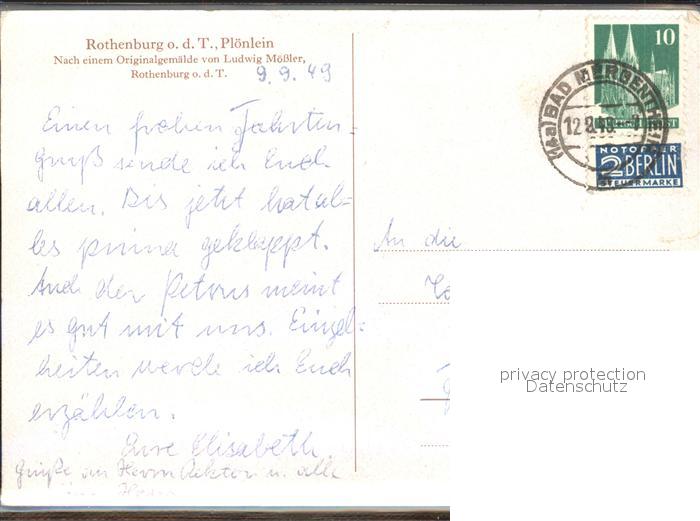 Rothenburg o. d. T., Plönlein
Nach einem Originalgemälde von Ludwig Mößler,
Rothenburg o. d. T.
9. 9. 49
Einen frohen Fahrten-
gruß sende ich Euch
allen. Bis jetzt hat al-
les prima geklappt.
Auch der Petrus meint
es gut mit uns. Einzel-
heiten werde ich Euch
erzählen.
Eure Elisabeth
Grüße an Herrn Rektor u. alle
An die
10
(14a) BAD MERGENTHEIM
NOTOPFER
2 BERLIN
STEUERMARKE
privacy protection
Datenschutz